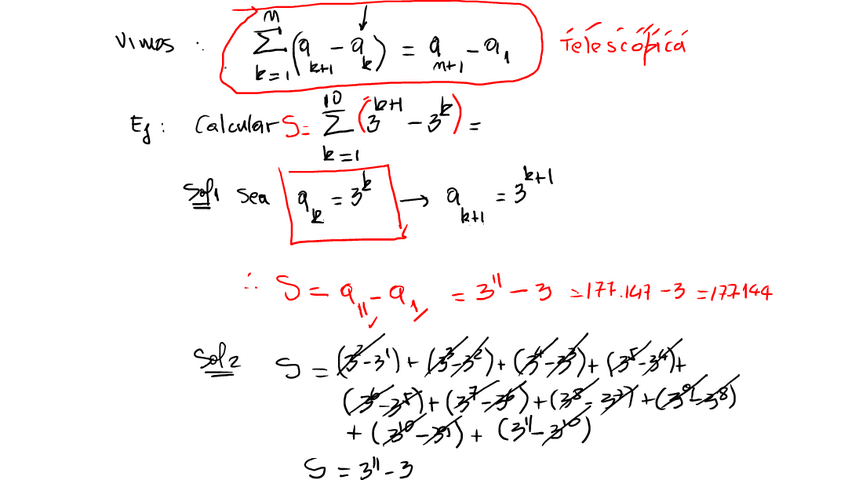 Vimos : \sum_{k=1}^{n} (a_{k+1} - a_k) = a_{n+1} - a_1 Telescópica
Ej : Calcular S = \sum_{k=1}^{10} (3^{k+1} - 3^k) =
Sol1 Sea a_k = 3^k → a_{k+1} = 3^{k+1}
∴ S = a_{11} - a_1 = 3^{11} - 3 = 177.147 - 3 = 177144
Sol2 S = (3^2 - 3^1) + (3^3 - 3^2) + (3^4 - 3^3) + (3^5 - 3^4) +
(3^6 - 3^5) + (3^7 - 3^6) + (3^8 - 3^7) + (3^9 - 3^8)
+ (3^{10} - 3^9) + (3^{11} - 3^{10})
S = 3^{11} - 3